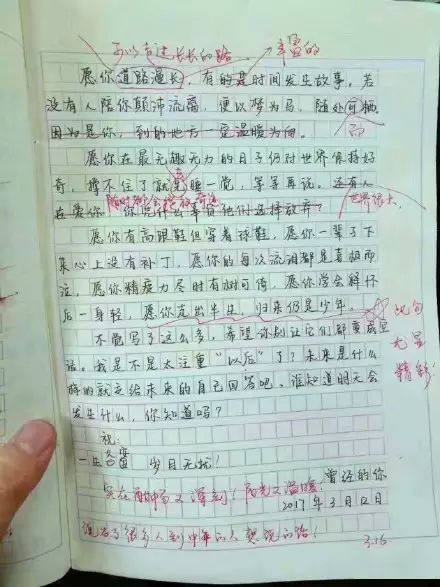 可以走过长长的路 丰富的
愿你道路漫长，有的是时间发生故事。若
没有人陪你颠沛流离，便以梦为马，随处可栖。
因为是你，到的地方一定温暖为向。
而
愿你在最无趣无力的日子仍对世界保持好
奇，撑不住了就先睡一觉，等等再说。还有人
在爱你，你凭什么辜负他们选择放弃？
世界很大
愿你有高跟鞋但穿着球鞋，愿你一辈子下
来心上没有补丁，愿你的每次流泪都是喜极而
泣，愿你精疲力尽时有树可倚，愿你学会释怀
后一身轻，愿你走出半生，归来仍是少年。
此句
不能写了这么多，希望你别让它们都变成空
尤显
话。我是不是太注重“以后”了？未来是什么
精彩！
样的就交给未来的自己回答吧。谁知道明天会
发生什么，你知道吗？
祝：
一生 岁月无扰！
实在酣畅又深刻！阳光又温暖 曾经的你
2017年3月12日
很多人到中年的人
3.16